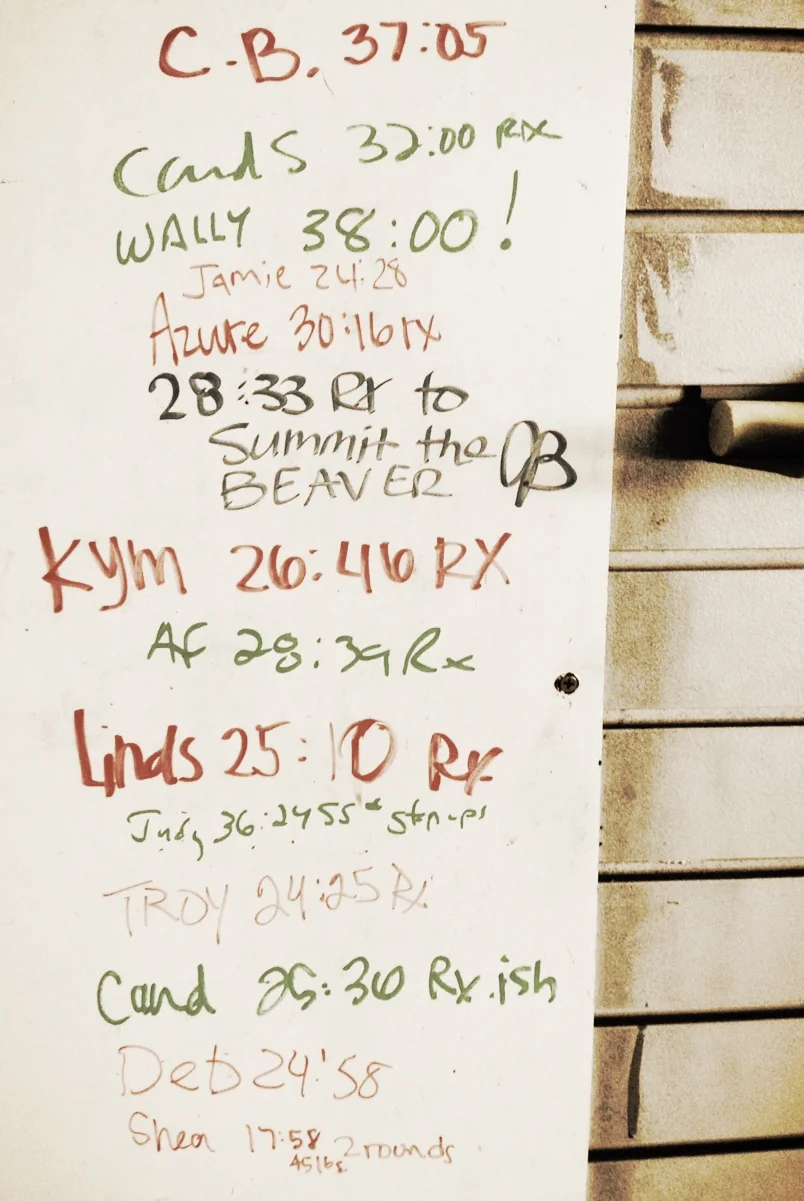 C.B. 37:05
Cand S 32:00 Rx
WALLY 38:00!
Jamie 24:28
Azure 30:16 rx
28:33 Rx to
Summit the
BEAVER
Kym 26:46 RX
AF 28:39 Rx
Linds 25:10 Rx
Judy 36:24 55# step-ups
TROY 24:25 Rx
Cand 25:30 Rx.ish
Deb 24'58
Shea 17:58 2 rounds
45lbs